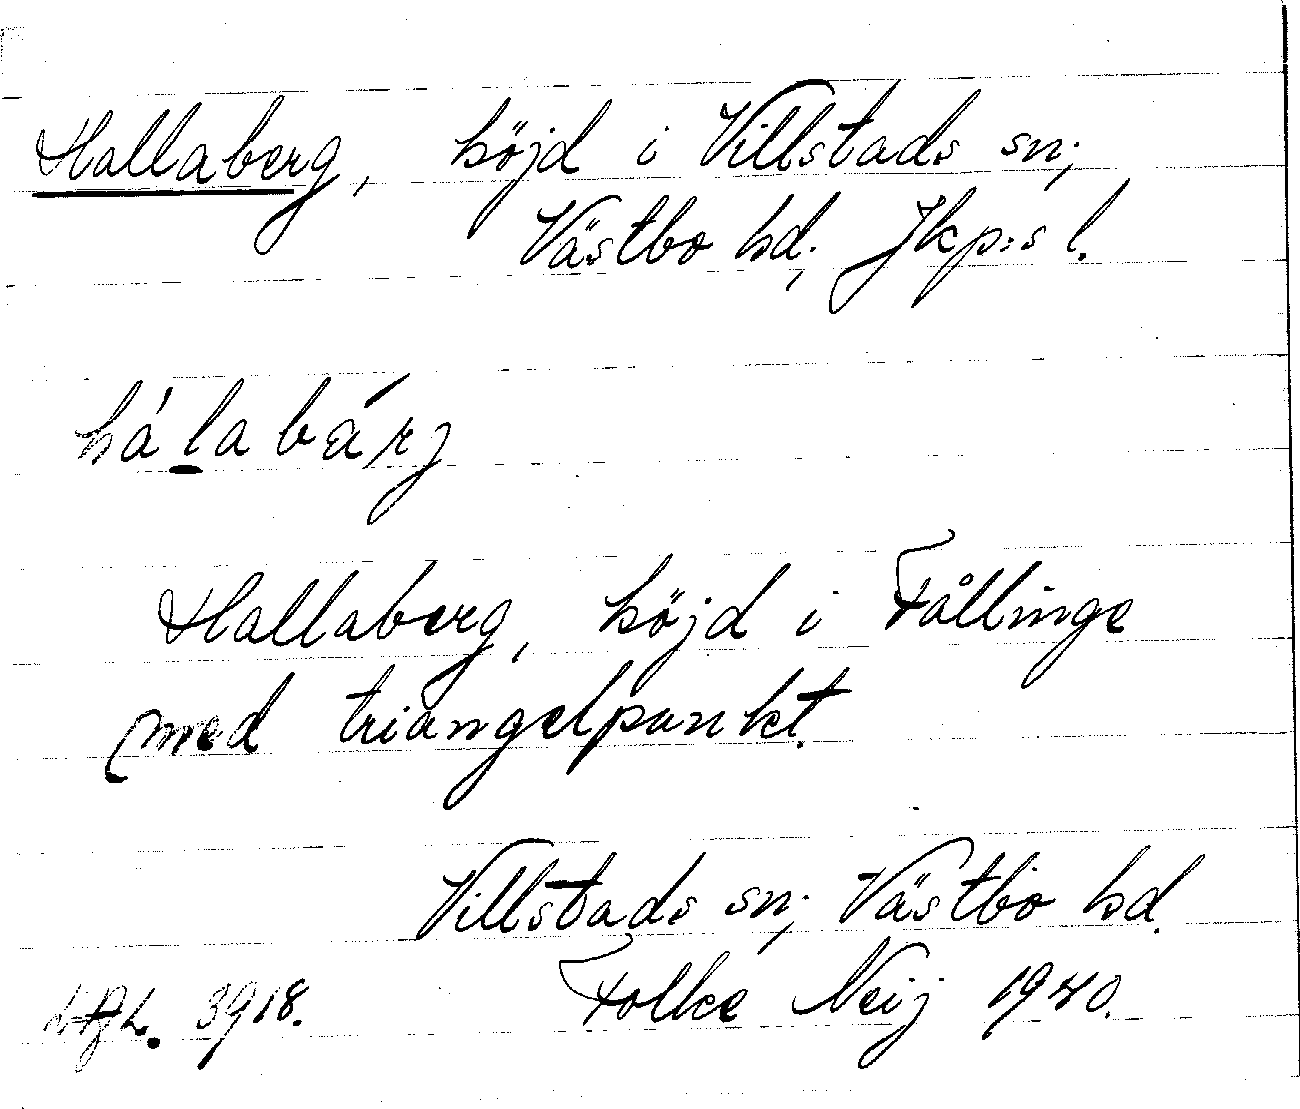 Hallaberg, höjd i Villstads sn;
Västbo hd; Jkp:s l.
hálabä́rj
Hallaberg, höjd i Fållinge
med triangelpunkt.
Villstads sn; Västbo hd.
3918. Folke Neij 1940.